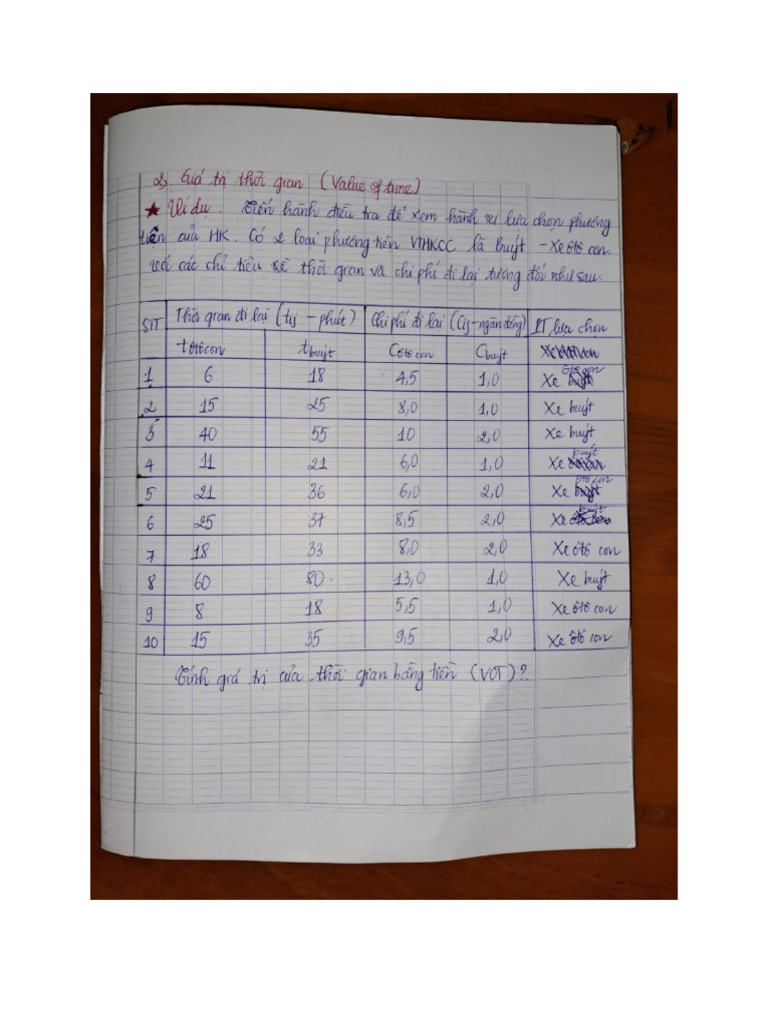 2, Giá trị thời gian (Value of time)
★ Ví dụ. Tiến hành điều tra để xem hành vi lựa chọn phương
tiện của HK. Có 2 loại phương tiện VTHKCC là buýt - Xe ôtô con.
với các chỉ tiêu về thời gian và chi phí đi lại tương đối như sau:
STT Thời gian đi lại (tij - phút) Chi phí đi lại (Cij - ngàn đồng) PT lựa chọn
t ôtô con t buýt C ôtô con C buýt
1 6 18 4,5 1,0 Xe ôtô con
2 15 25 8,0 1,0 Xe buýt
3 40 55 10 2,0 Xe buýt
4 11 21 6,0 1,0 Xe buýt
5 21 36 6,0 2,0 Xe ôtô con
6 25 37 8,5 2,0 Xe buýt
7 18 33 8,0 2,0 Xe ôtô con
8 60 80 13,0 1,0 Xe buýt
9 8 18 5,5 1,0 Xe ôtô con
10 15 35 9,5 2,0 Xe ôtô con
Tính giá trị của thời gian bằng tiền (VOT)?